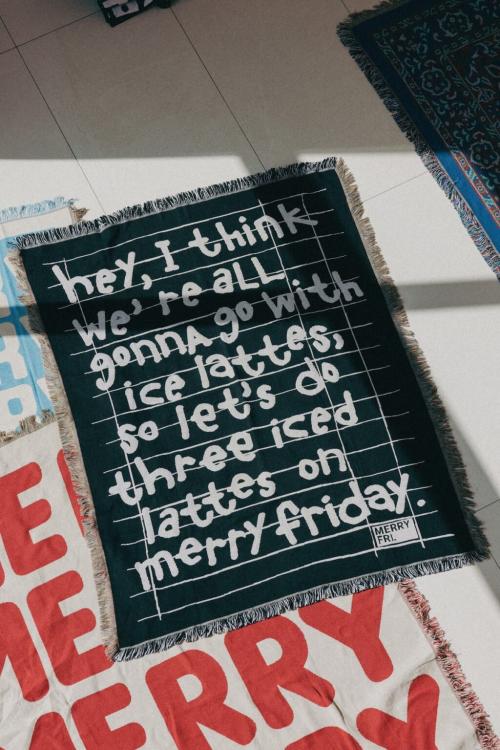 hey, I think
we're all
gonna go with
ice lattes,
so let's do
three iced
lattes on
merry friday.
MERRY
FRI.
MERRY